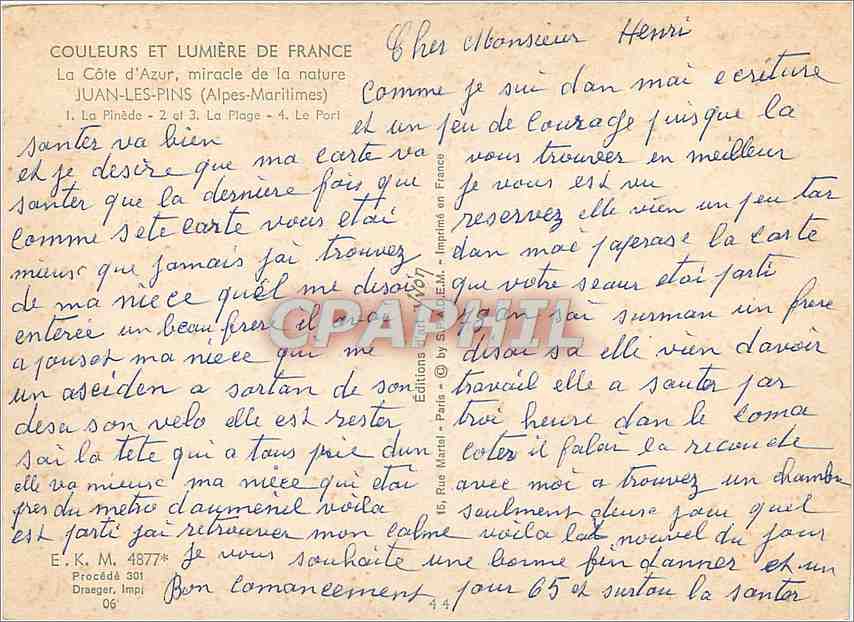 COULEURS ET LUMIÈRE DE FRANCE
La Côte d'Azur, miracle de la nature
JUAN-LES-PINS (Alpes-Maritimes)
1. La Pinède - 2 et 3. La Plage - 4. Le Port
Cher Monsieur Henri
comme je sui dan mai ecriture
et un peu de courage puisque la
santer va bien
et je desire que ma carte va vous trouver en meilleur
santer que la dernière fois que je vous est vu
comme sete carte vous etai reservez elle vien un peu tar
mieusc que jamais jai trouvez dan mai paperase la carte
de ma niece quél me disai que votre seaur etai parti
enterée un beau frere il avai sai surman un frere
a jouset ma nièce qui me disai sa elli vien davoir
un asciden a sortan de son travail elle a sauter par
desu son velo elle est rester troi heure dan le coma
sai la tete qui a tous prie dun coter il falai la recoudre
elle va mieusc ma nièce qui etai avec moi a trouvez un chambre
pres du metro daumeniel voila seulment deusc jour quel
est parti jai retrouver mon calme voila la nouvel du jour
Je vous souhaite une bonne fin danner et un
Bon comancement pour 65 et surtou la santer
Éditions d'art Yvon
15, Rue Martel - Paris - © by S.P.A.D.E.M. - Imprimé en France
CPAPHIL
E. K. M. 4877*
Procédé 301
Draeger, Imp.
06
44